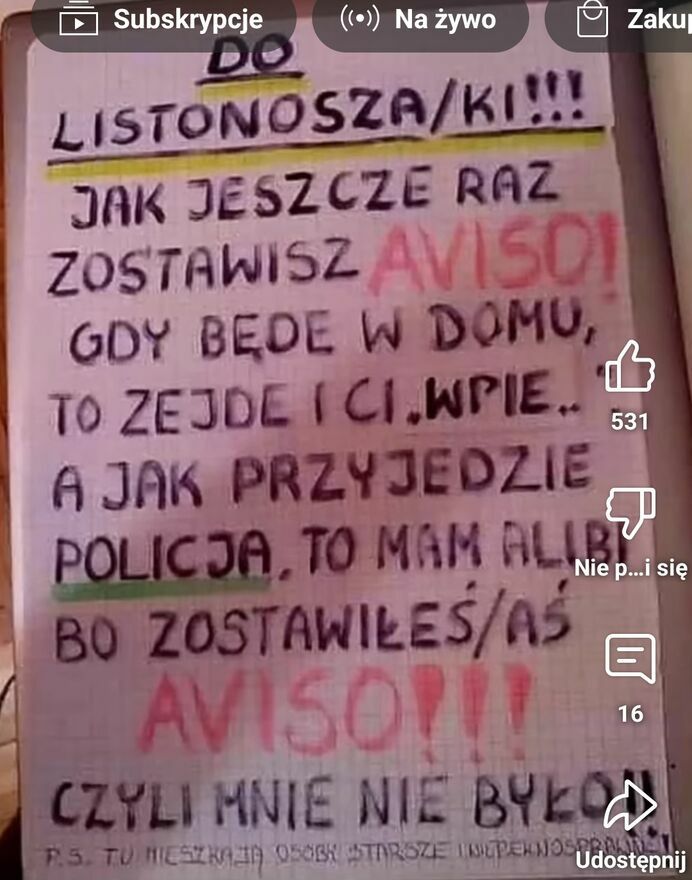 Subskrypcje
Na żywo
Zaku
DO
LISTONOSZA/KI!!!
JAK JESZCZE RAZ
ZOSTAWISZ AVISO!
GDY BĘDE W DOMU,
TO ZEJDE I CI „WPIE.."
531
A JAK PRZYJEDZIE
POLICJA, TO MAM ALIBI
Nie p...i się
BO ZOSTAWIŁEŚ/AŚ
AVISO!!!
16
CZYLI MNIE NIE BYŁO!!
P.S. TU MIESZKAJĄ OSOBY STARSZE I NIEPEŁNOSPRAWNE!
Udostępnij